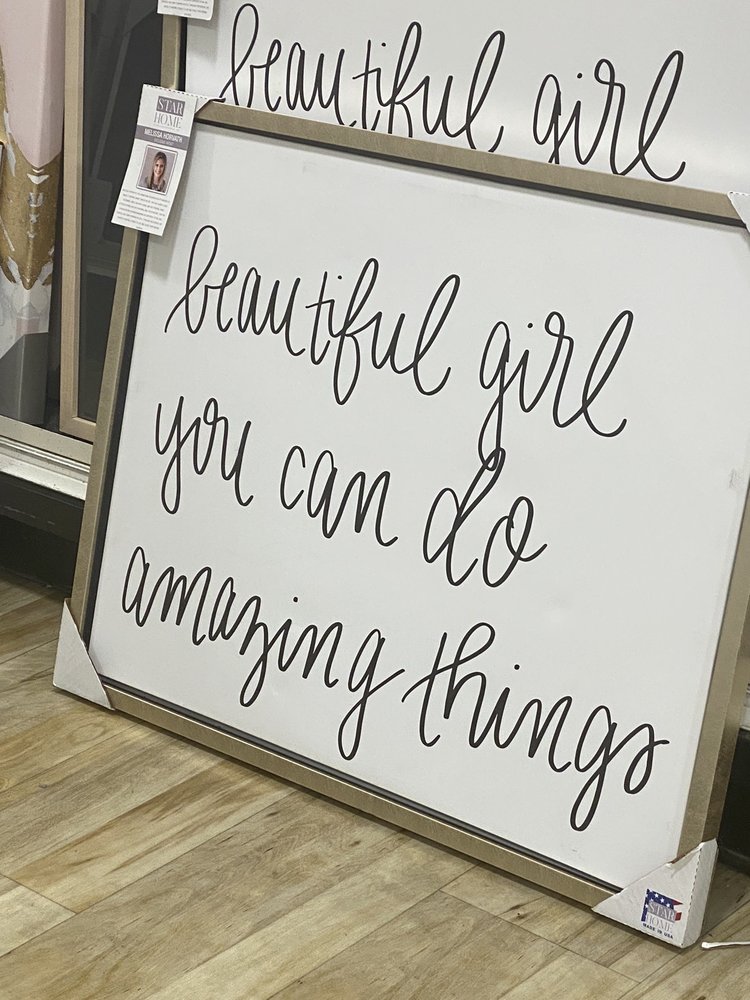 beautiful girl
STAR
HOME
MELISSA HORVATH
beautiful girl
you can do
amazing things
STAR
HOME
MADE IN USA